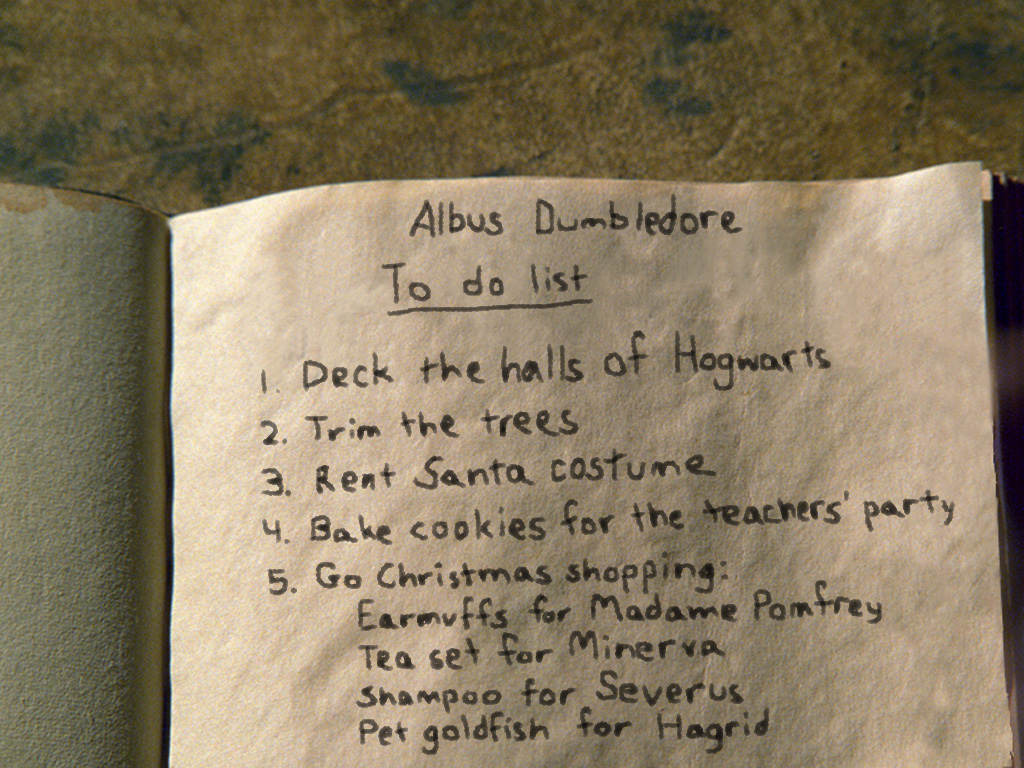 Albus Dumbledore
To do list
1. Deck the halls of Hogwarts
2. Trim the trees
3. Rent Santa costume
4. Bake cookies for the teachers' party
5. Go Christmas shopping:
Earmuffs for Madame Pomfrey
Tea set for Minerva
Shampoo for Severus
Pet goldfish for Hagrid